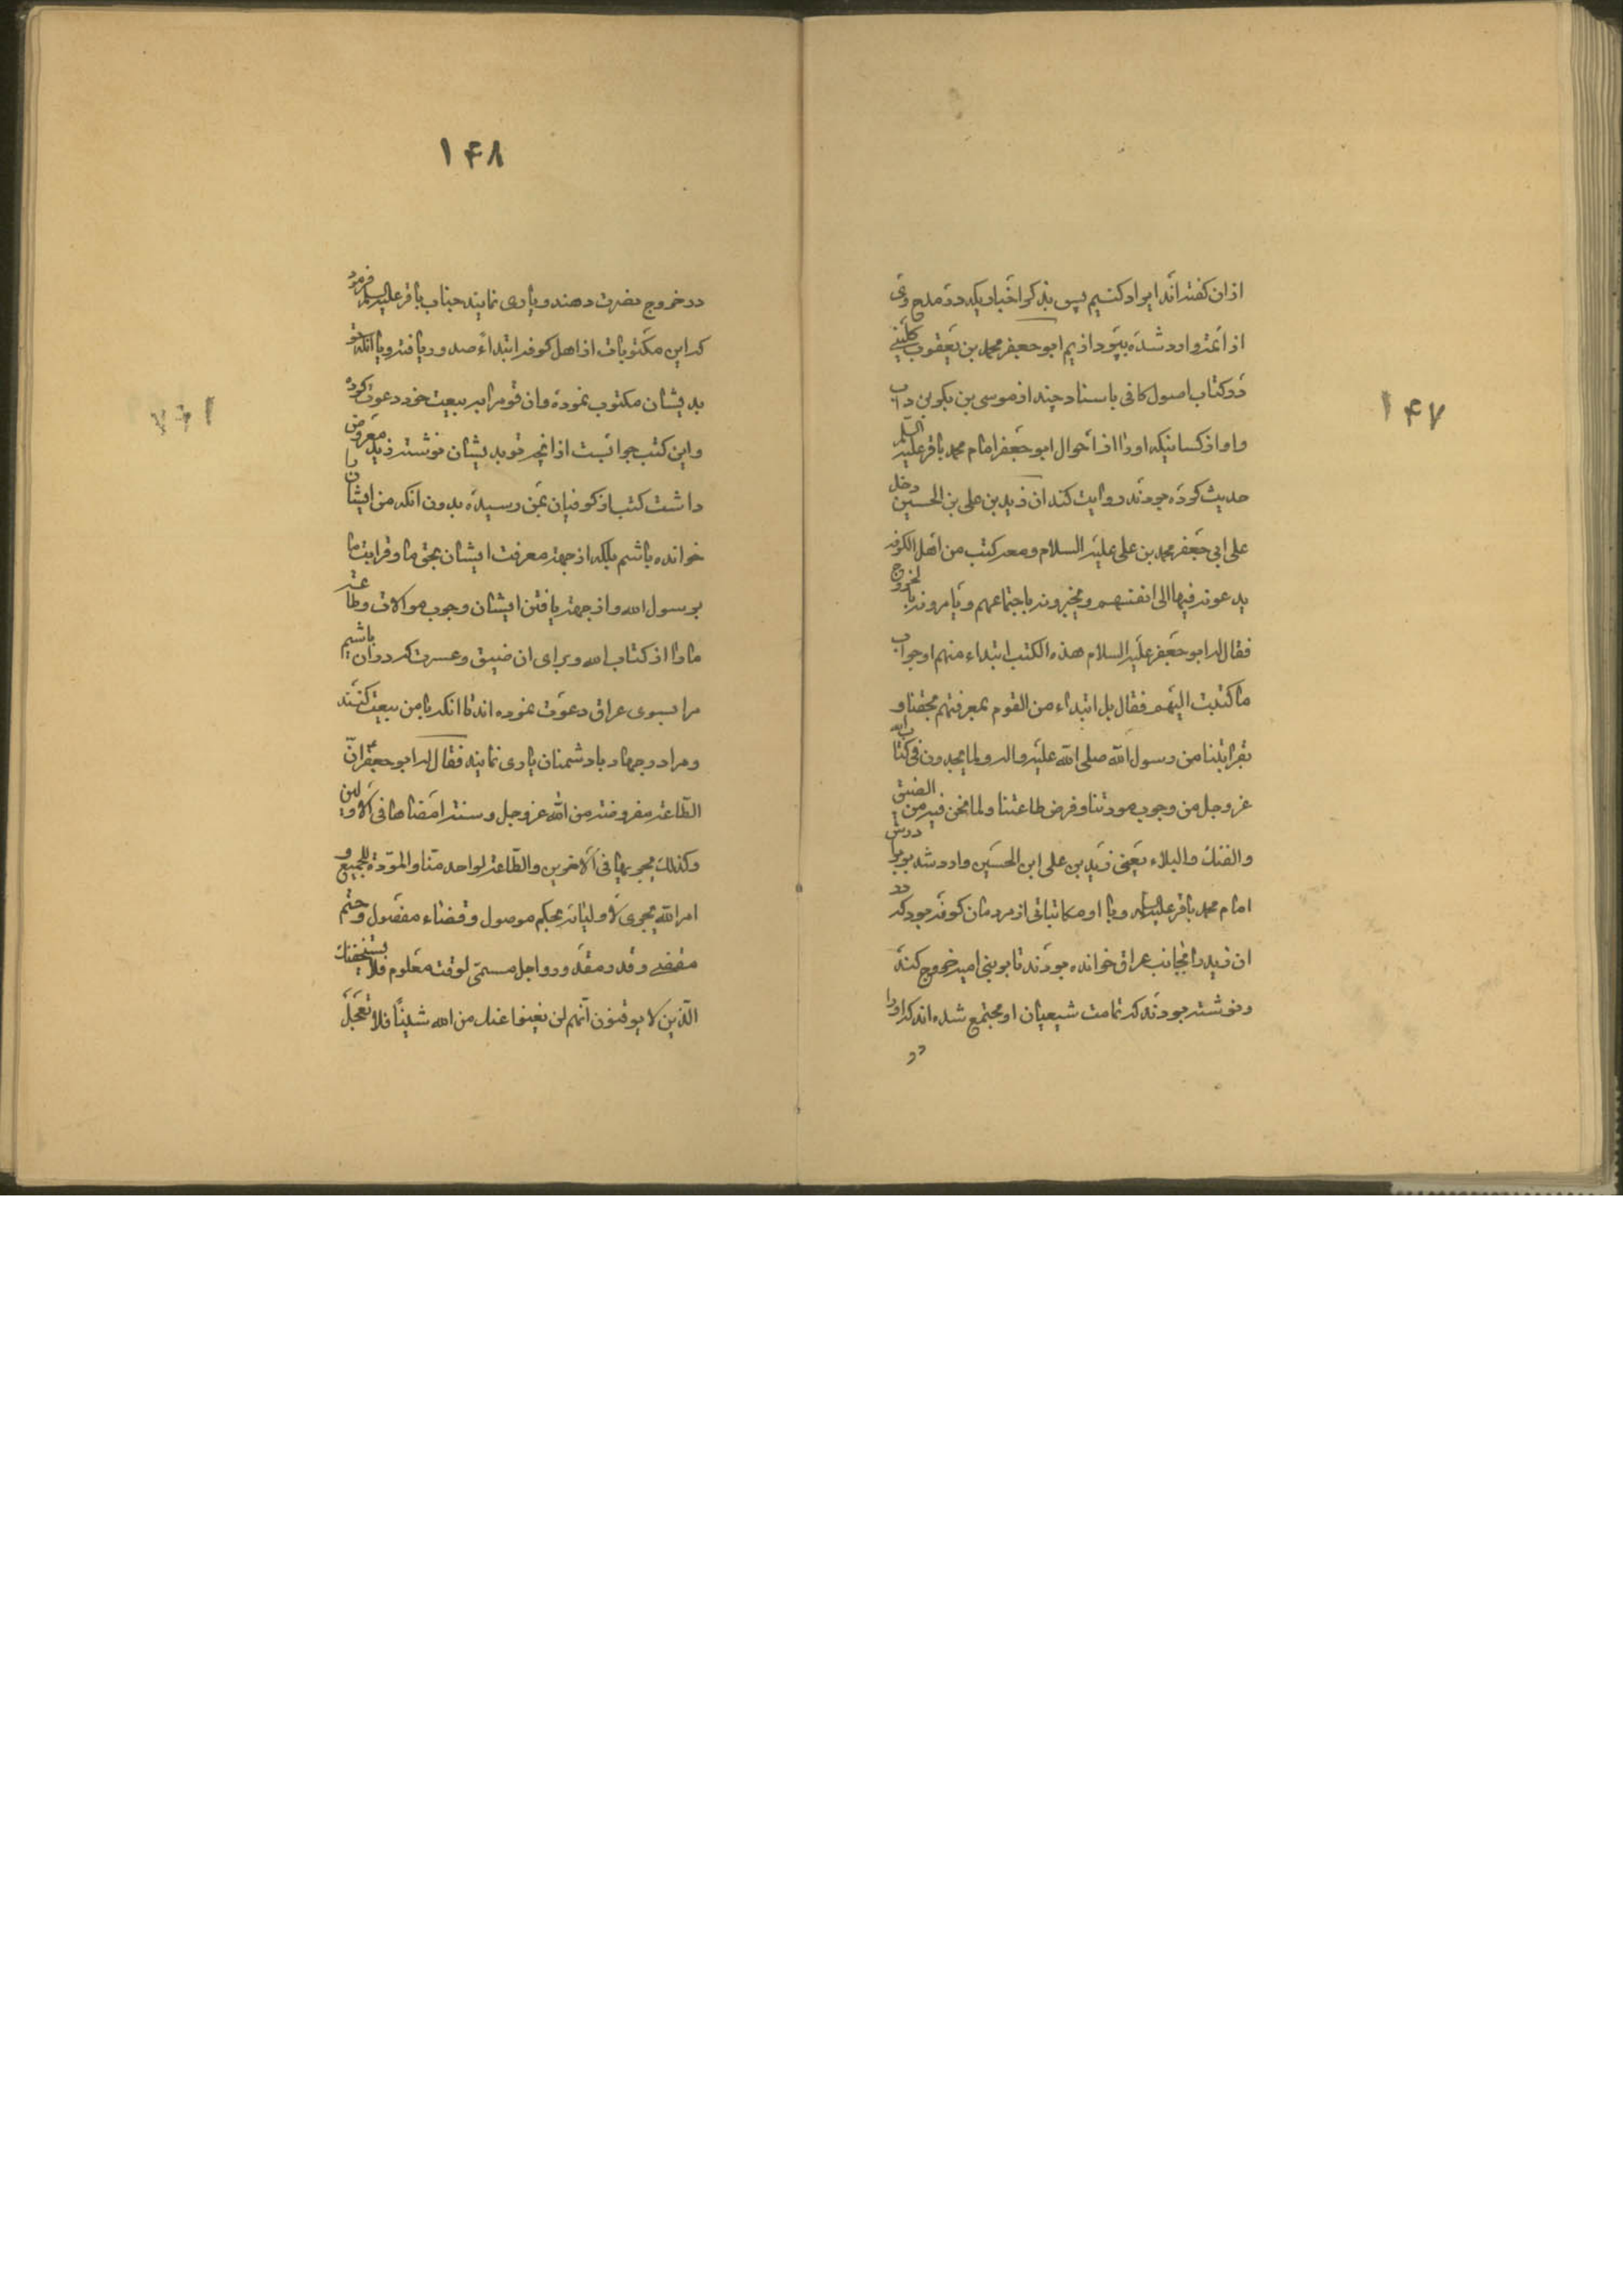 ۱۴۷
ازان گفته‌اند ایراد کنیم پس بذکر اخباریکه در مدح وی
از ائمه وارد شده بپردازیم ابو جعفر محمد بن یعقوب کلینی
در کتاب اصول کافی باسناد چند از موسی بن بکر بن داب
و او از کسانیکه او را از احوال ابو جعفر امام محمد باقر علیه السلم
حدیث کرده بودند روایت کند ان زید بن علی بن الحسین دخل
علی ابی جعفر محمد بن علی علیه السلام و معه کتب من اهل الکوفه
یدعونه فیها الی انفسهم و یخبرونه باجتماعهم و یامرونه بالخروج
فقال له ابو جعفر علیه السلام هذه الکتب ابتداء منهم او جواب
ما کتبت الیهم فقال بل ابتداء من القوم بمعرفتهم بحقنا و
بقرابتنا من رسول الله صلی الله علیه و اله و لما یجدون فی کتاب الله
عز وجل من وجوب مودتنا و فرض طاعتنا و لما نحن فیه من الضیق
والضنك والبلاء یعنی زید بن علی ابن الحسین وارد شد بر برادرش
امام محمد باقر علیه السلم و با او مکاتباتی از مردمان کوفه بود که در
ان زید را بجانب عراق خوانده بودند تا بر بنی امیه خروج کند
و نوشته بودند که تمامت شیعیان او مجتمع شده اند که او را
در
۱۴۸
در خروج نصرت دهند و یاری نمایند جناب باقر علیه السلم فرمود
که این مکتوبات از اهل کوفه ابتداء صدور یافته و یا انکه تو
بدیشان مکتوب نموده و ان قوم را به بیعت خود دعوت کرده
و این کتب جوابست از انچه تو بدیشان نوشته زید معروض
داشت کتب از کوفیان بمن رسیده بدون انکه من ایشان را
خوانده باشم بلکه از جهة معرفت ایشان بحق ما و قرابت ما
برسول الله و از جهة یافتن ایشان وجوب موالات و طاعت
ما را از کتاب الله و برای ان ضیق و عسرت که در ان باشیم
مرا بسوی عراق دعوت نموده اند تا انکه با من بیعت کنند
و مرا در جهاد با دشمنان یاری نمایند فقال له ابو جعفر ان
الطاعة مفروضة من الله عز وجل و سنة امضاها فی الاولین
و کذلك یجریها فی الاخرین والطاعة لواحد منا والمودة للجمیع و
امر الله یجری لاولیائه بحکم موصول و قضاء مفصول و حتم
مقضی و قدر مقدور و اجل مسمی لوقت معلوم فلا یستخفنك
الذین لا یوقنون انهم لن یغنوا عنك من الله شیئا فلا تعجل